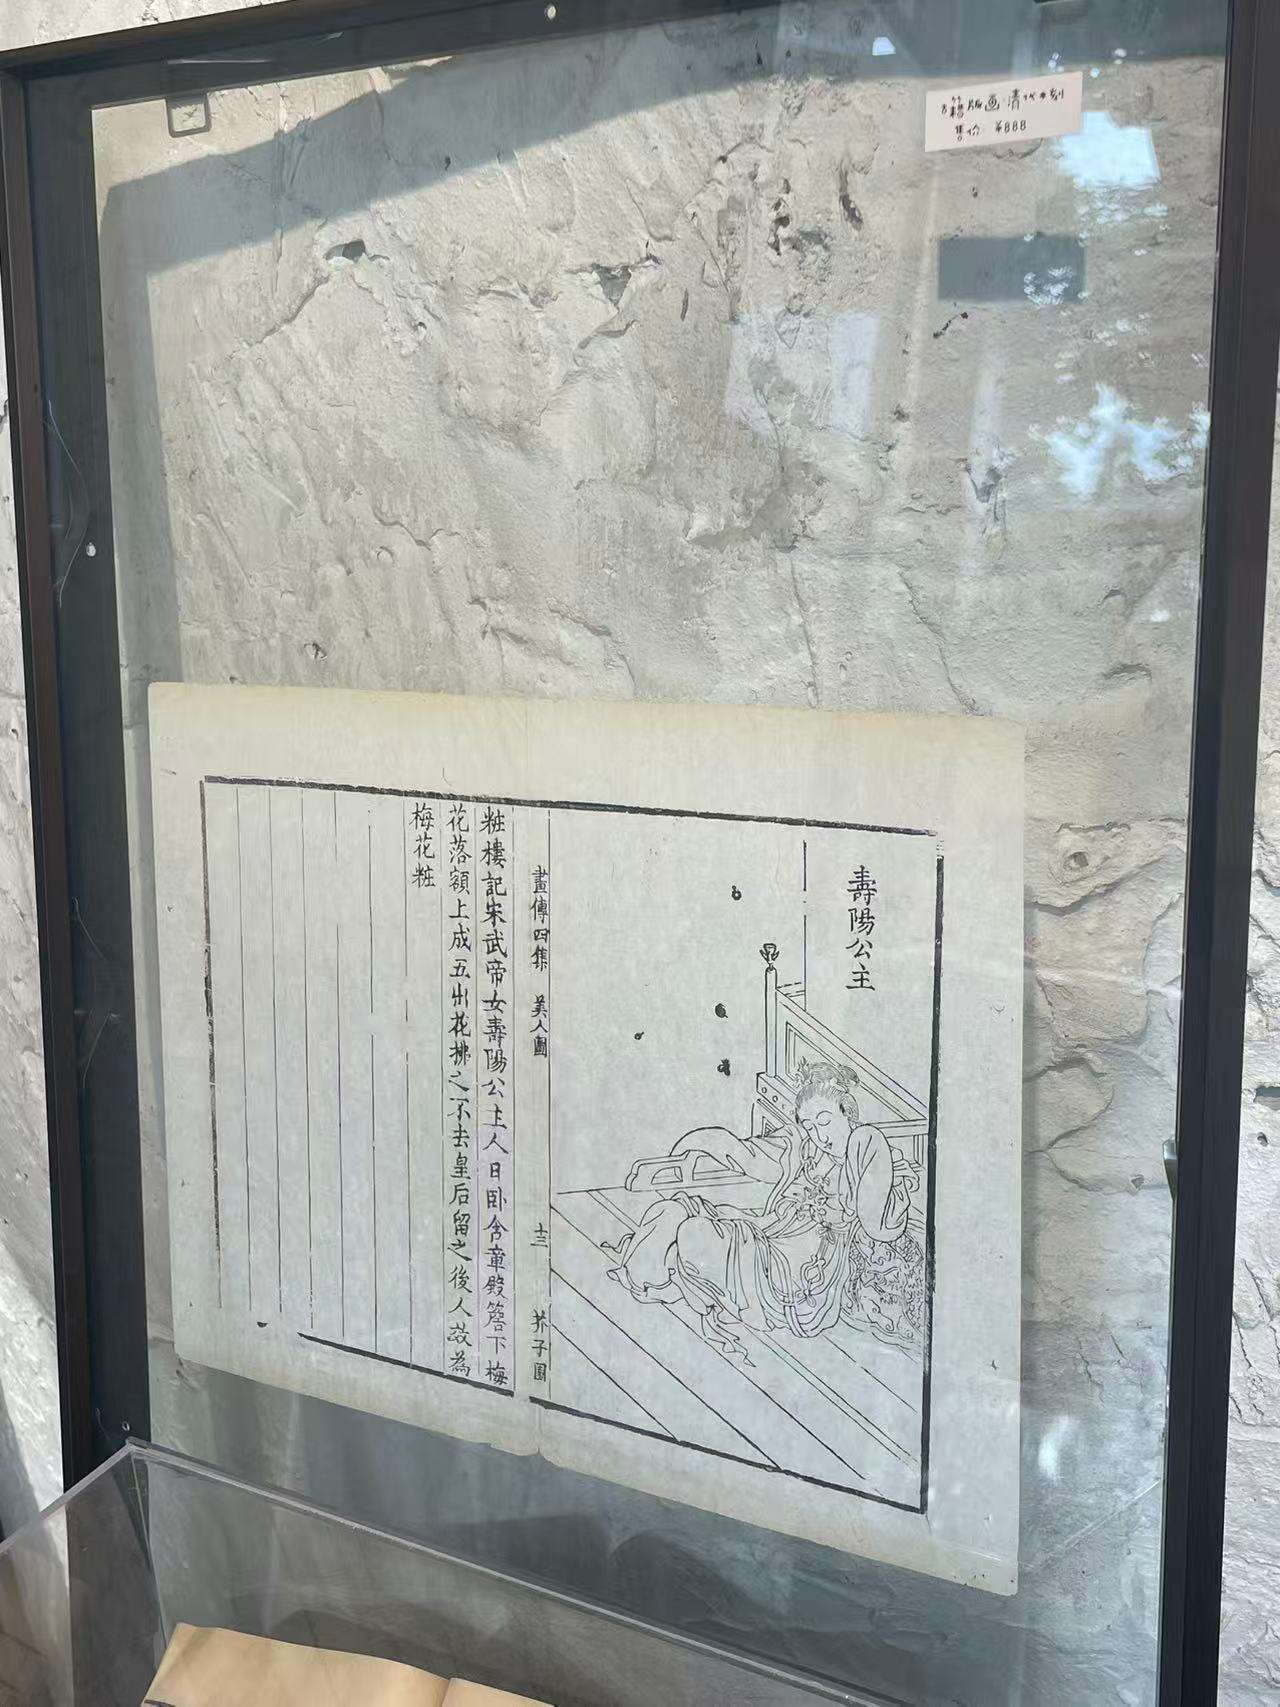 古籍版画 清代木刻
售价 ¥888
壽陽公主
畫傳四集 美人圖 十三 芥子園
粧樓記宋武帝女壽陽公主人日卧含章殿簷下梅
花落額上成五出花拂之不去皇后留之後人效為
梅花粧